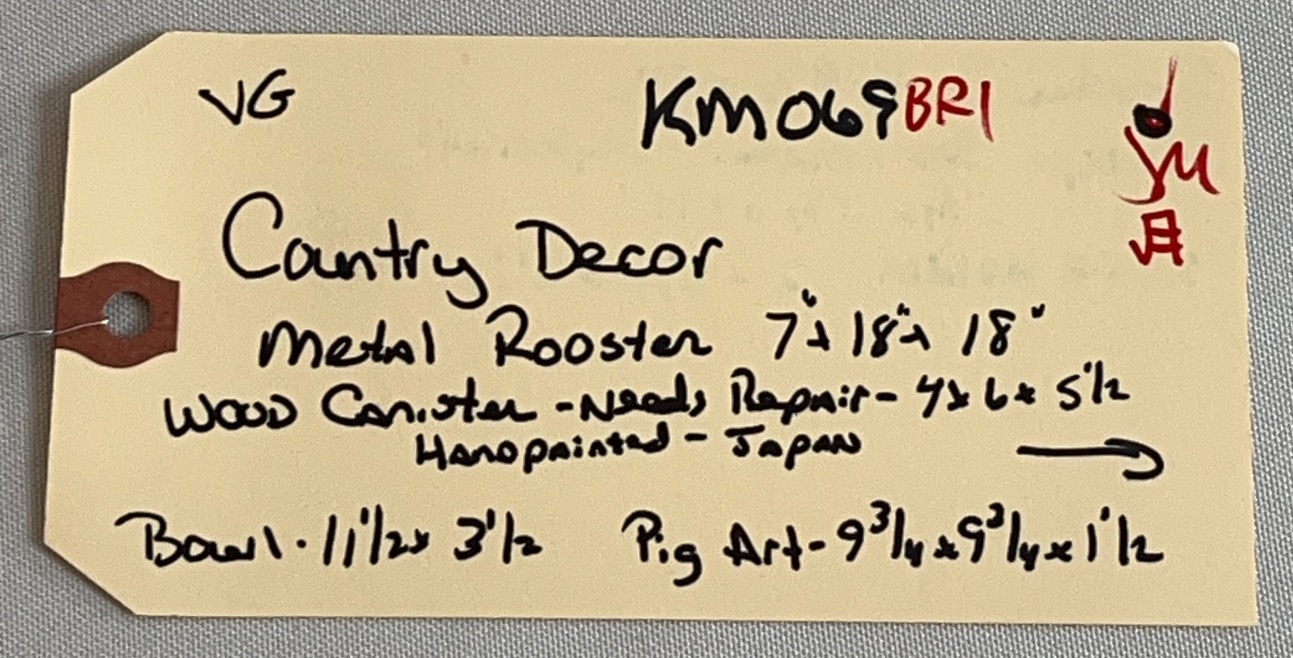 VG KM069 BR1
JM
Country Decor
Metal Rooster 7" x 18" x 18"
Wood Canister - Needs Repair - 4 x 6 x 5 1/2
Handpainted - Japan
Bowl - 11 1/2 x 3 1/2 Pig Art - 9 3/4 x 9 3/4 x 1 1/2